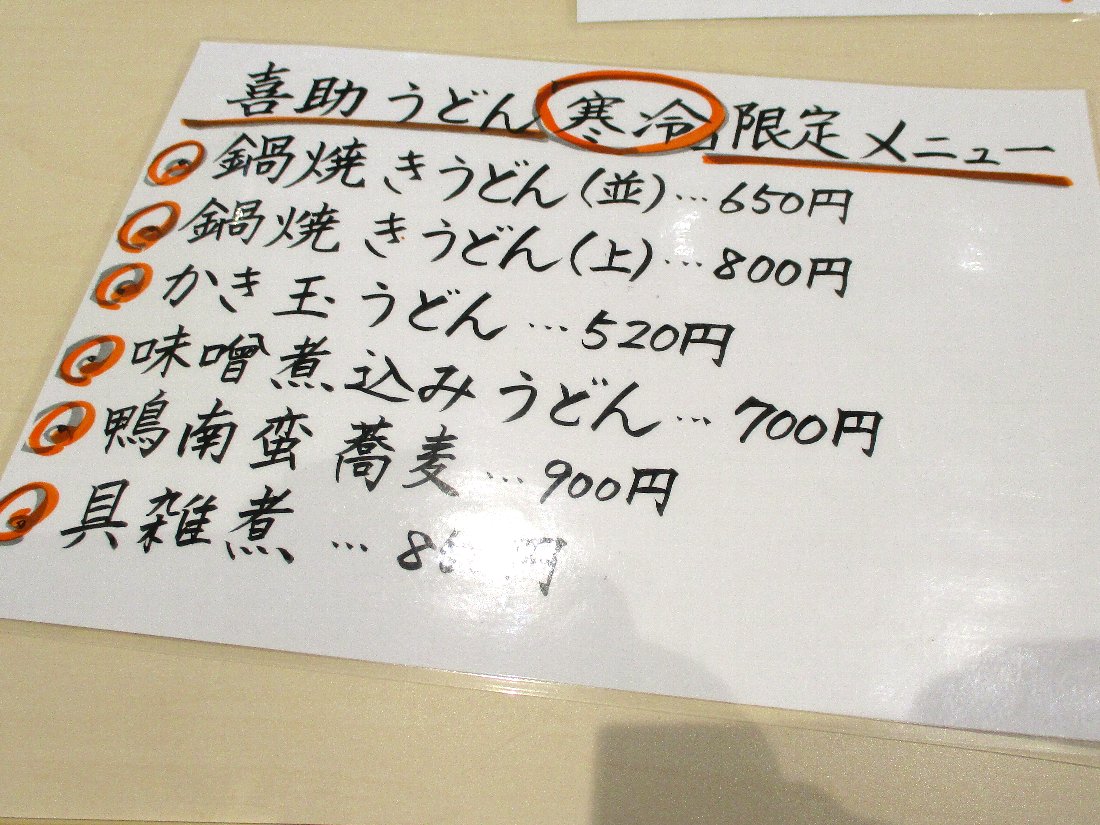 喜助うどん 寒冷 限定メニュー
鍋焼きうどん(並)…650円
鍋焼きうどん(上)…800円
かき玉うどん…520円
味噌煮込みうどん…700円
鴨南蛮蕎麦…900円
具雑煮…